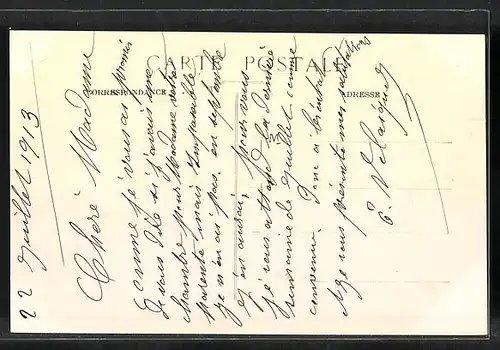 CARTE POSTALE
CORRESPONDANCE
ADRESSE
22 Juillet 1913
Chère Madame
Comme je vous ai promis
de vous dire si j'aurais une
chambre pour Madame votre
parente mais impossible
je n'en ai pas, en septembre
j'en aurai, pour vous
je vous attend la dernière
semaine de Juillet comme
convenu. Donc a bientôt
et je vous présente mes salutations